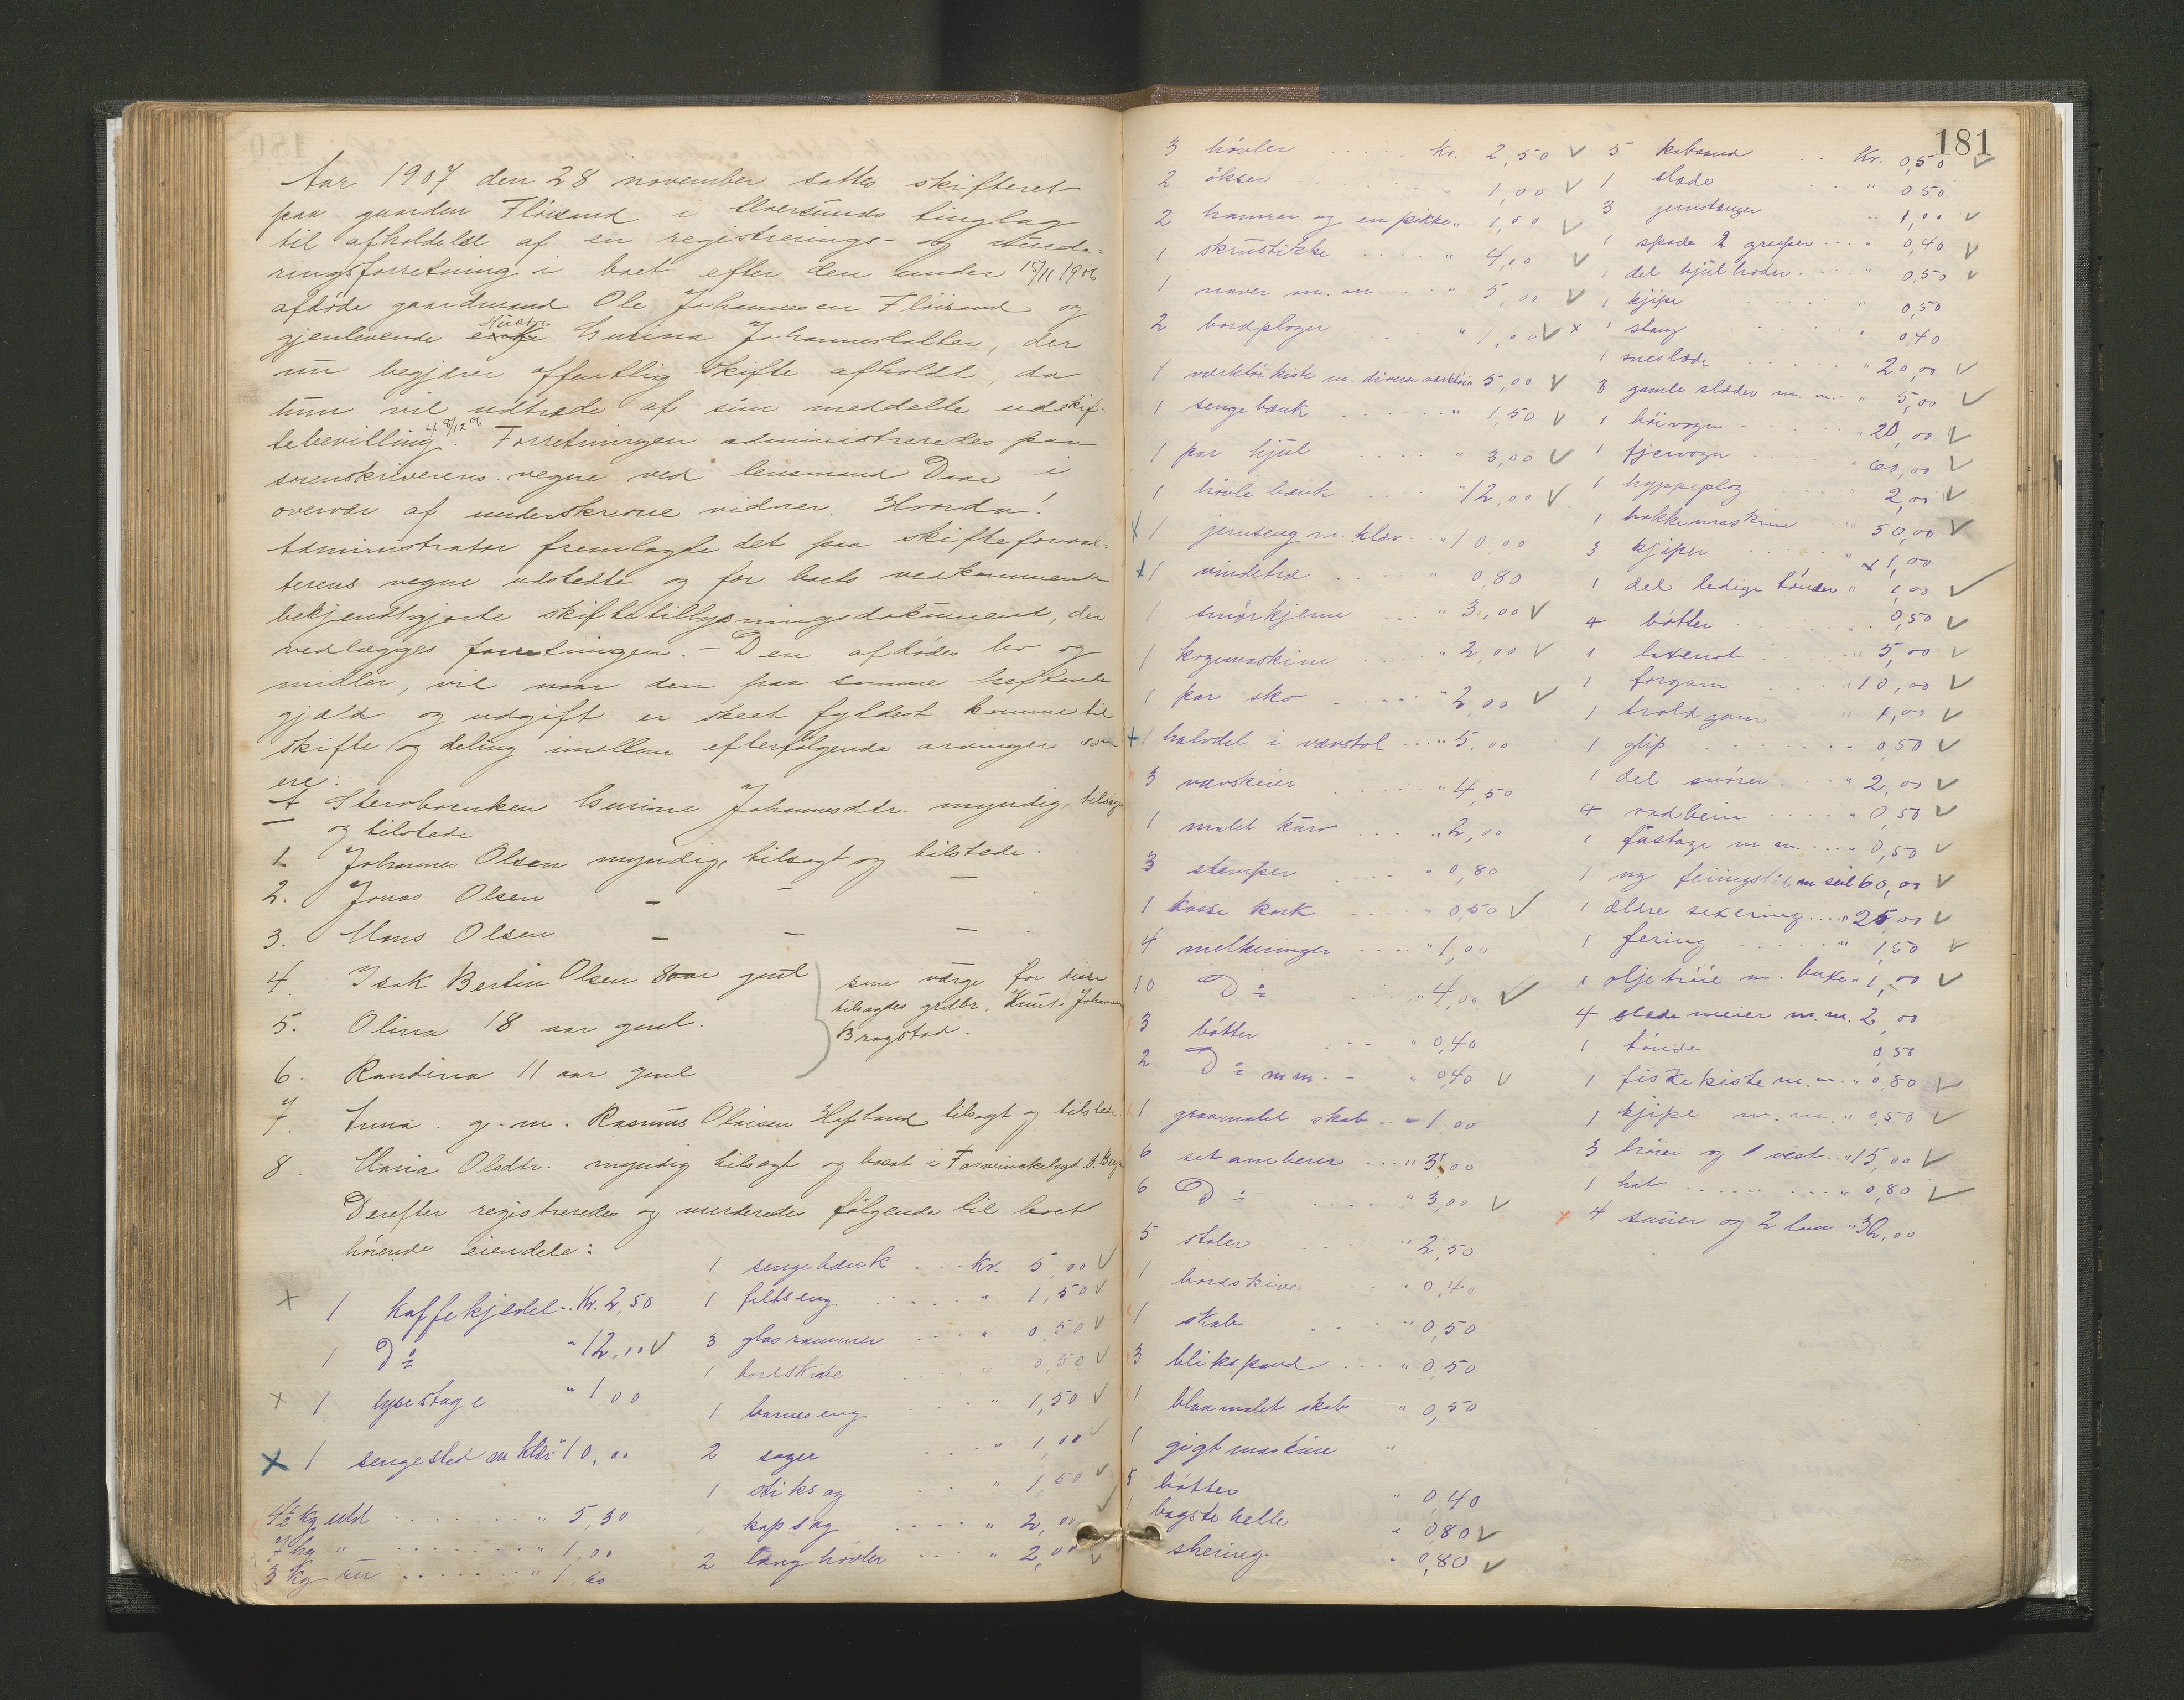 Aar 1907 den 28 november sattes skifteret
paa gaarden Flöisand i Alversunds tinglag
til afholdelse af en registrerings- og vurde-
ringsforretning i boet efter den under 15/11 1906
afdöde gaardmand Ole Johannessen Flöisand og
gjenlevende enke Gurina Johannesdatter, der
nu begjærer offentlig skifte afholdt, da
hun vil udtræde af sin meddelte udskif-
tebevilling af 8/12 06. Forretningen administreredes paa
sorenskriverens vegne ved lensmand Daae i
overvær af underskrevne vidner. Hvorda!
Administrator fremlagde det paa skifteforval-
terens vegne udstedte og for boets vedkommende
bekjendtgjorte skiftetillysningsdokument, der
vedlægges forretningen. - Den afdödes bo og
midler, vil naar den paa samme heftende
gjæld og udgift er skeet fyldest komme til
skifte og deling imellem efterfölgende arvinger som
ere:
A Stervboenken Gurine Johannesdtr. myndig, tilsagt
og tilstede
1. Johannes Olsen myndig, tilsagt og tilstede.
2. Jonas Olsen - - - .
3. Mons Olsen - - - .
4. Isak Bertin Olsen 8 aar gml
5. Olina 18 aar gml.
6. Randina 11 aar gml
som værge for disse
tilsagdes grdbr. Knut Johannes
Bragstad.
7. Anna g. m. Rasmus Olaisen Hopland tilsagt og tilstede
8. Maria Olsdtr. myndig tilsagt og bosat i
Derefter registreredes og vurderedes fölgende til boet
hörende eiendele:
1 kaffekjedel .. Kr. 2,50
1 Do " 12,00
1 lysestage " 1,00
1 sengested m klær " 10,00
4½ kg uld " 5,30
7 hg " " 1,00
3 kg " 1,60
1 sengebænk ... Kr. 5,00
1 feltseng " 1,50
3 glasrammer " 0,50
1 bordskive " 0,50
1 barneseng " 1,50
2 sager " 1,00
1 stiksag " 1,50
1 kapsag " 2,00
2 langhövler " 2,00
181
3 hövler Kr. 2,50
2 ökser " 1,00
2 hamrer og en pikke " 1,00
1 skrustikke " 4,00
1 naver m.m " 5,00
2 bordploger " 1,00
1 værktöikiste m. diverse værktöi " 5,00
1 sengebænk " 1,50
1 par hjül " 3,00
1 hövlebænk " 12,00
1 jernseng m. klær " 10,00
1 vindetræ " 0,80
1 smörkjerne " 3,00
1 kogemaskine " 2,00
1 par sko " 2,00
1 halvdel i vævstol " 5,00
3 vævskeier " 4,50
1 malet kürv " 2,00
3 stamper " 0,80
1 kasse kork " 0,50
4 melkeringer " 1,00
10 Do " 4,00
3 bötter " 0,40
2 Do m m. " 0,40
1 graamalet skab " 1,00
6 set amberer " 3,00
6 Do " 3,00
5 stoler " 2,50
1 bordskive " 0,40
1 skab " 0,50
3 blikspand " 0,50
1 blaamalet skab " 0,50
1 gigtmaskine "
5 bötter " 0,40
1 bagstehelle " 0,80
skering " 0,80
5 Kr. 0,50
1 slæde " 0,50
3 jernstænger " 1,00
1 spade 2 greiper " 0,40
1 del hjülhoder " 0,50
1 kjipe " 0,50
1 stang " 0,40
1 meslæde " 20,00
3 gamle slæder m. m. " 5,00
1 höivogn " 20,00
1 fjervogn " 60,00
1 hyppeplog " 2,00
1 hakkemaskine " 50,00
3 kjiper " 1,00
1 del ledige tönder " 1,00
4 bötter " 0,50
1 laxenot " 5,00
1 forgarn " 10,00
1 troldgarn " 1,00
1 glip " 0,50
1 del snörer " 2,00
4 vadbein " 0,50
1 füstage m m. " 0,50
1 ny m seil 60,00
1 ældre sexering " 25,00
1 fering " 1,50
1 oljetröie m. buxe " 1,00
4 slædemeier m.m. 2,00
1 tönde 0,50
1 fiskekiste m.m. " 0,80
1 kjipe m.m. " 0,50
3 tröier og 1 vest " 15,00
1 hat " 0,80
4 sauer og 2 lam " 32,00